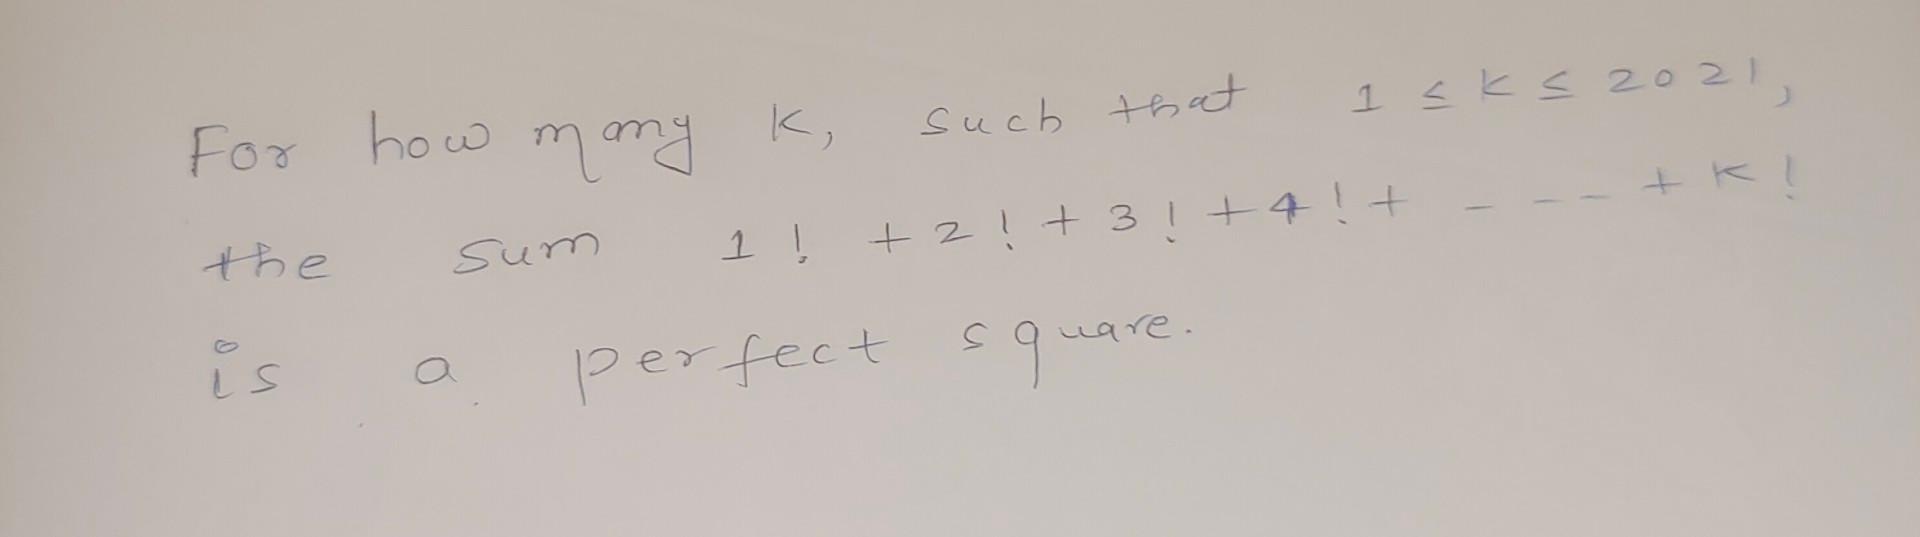 For how many K, such that 1 ≤ K ≤ 2021,
the sum 1! + 2! + 3! + 4! + - - - - + K!
is a perfect square.